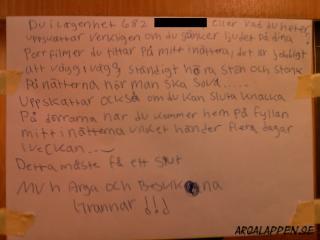 Du i lägenhet 682 eller vad du heter,
uppskattar verkligen om du sänker ljudet på dina
Porrfilmer du tittar på mitt i nätterna, det är jobbigt
att vägg i vägg ständigt höra stön och stonk
På nätterna när man ska sova.....
Uppskattar också om du kan sluta knacka
På dörrarna när du kommer hem på fyllan
mitt i nätterna vilket händer flera dagar
i veckan...
Detta måste få ett slut
MVH Arga och Besvikna
Grannar !!!
ARGALAPPEN.SE